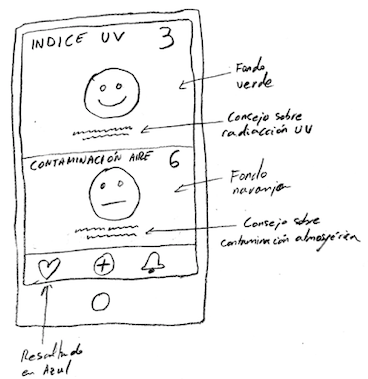 INDICE UV 3
Fondo
verde
Consejo sobre
radiacción UV
CONTAMINACIÓN AIRE 6
Fondo
naranja
Consejo sobre
contaminación atmosférica
Resaltado
en Azul